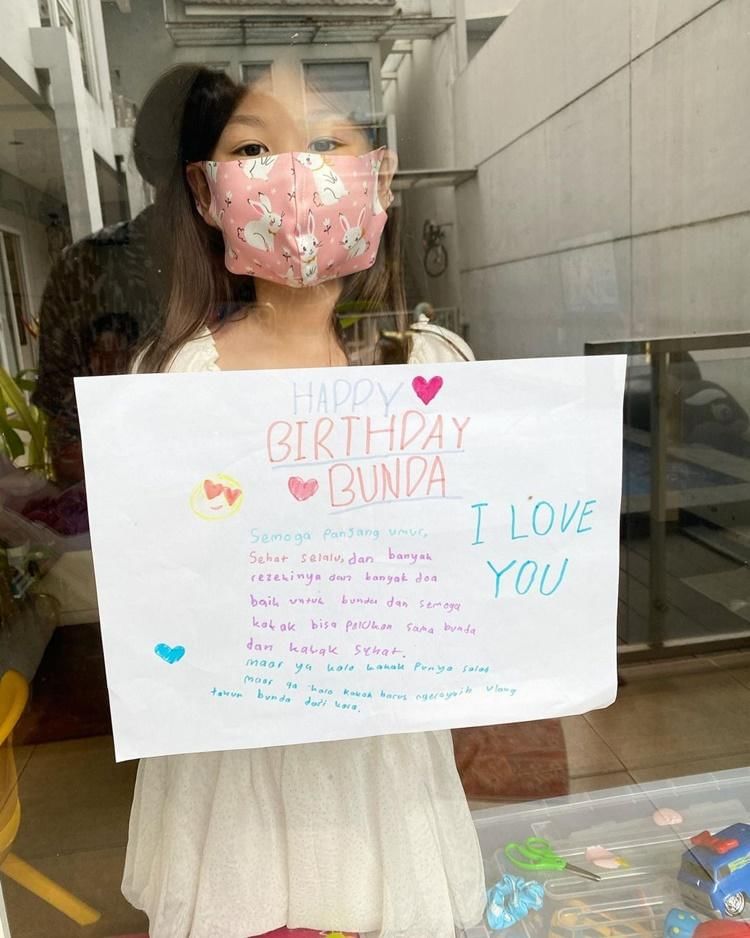 HAPPY
BIRTHDAY
BUNDA
I LOVE
YOU
Semoga Panjang umur,
Sehat selalu, dan banyak
rezekinya dan banyak doa
baik untuk bunda dan semoga
kakak bisa pelukan sama bunda
dan kakak sehat.
maaf ya kalo kakak punya salas
maaf ya kalo kakak harus ngerayain ulang
tahun bunda dari kaca.